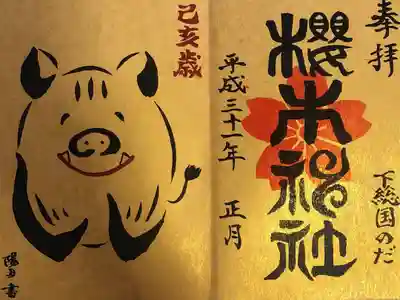 奉拝
下総国のだ
櫻木神社
平成三十一年 正月
己亥歳